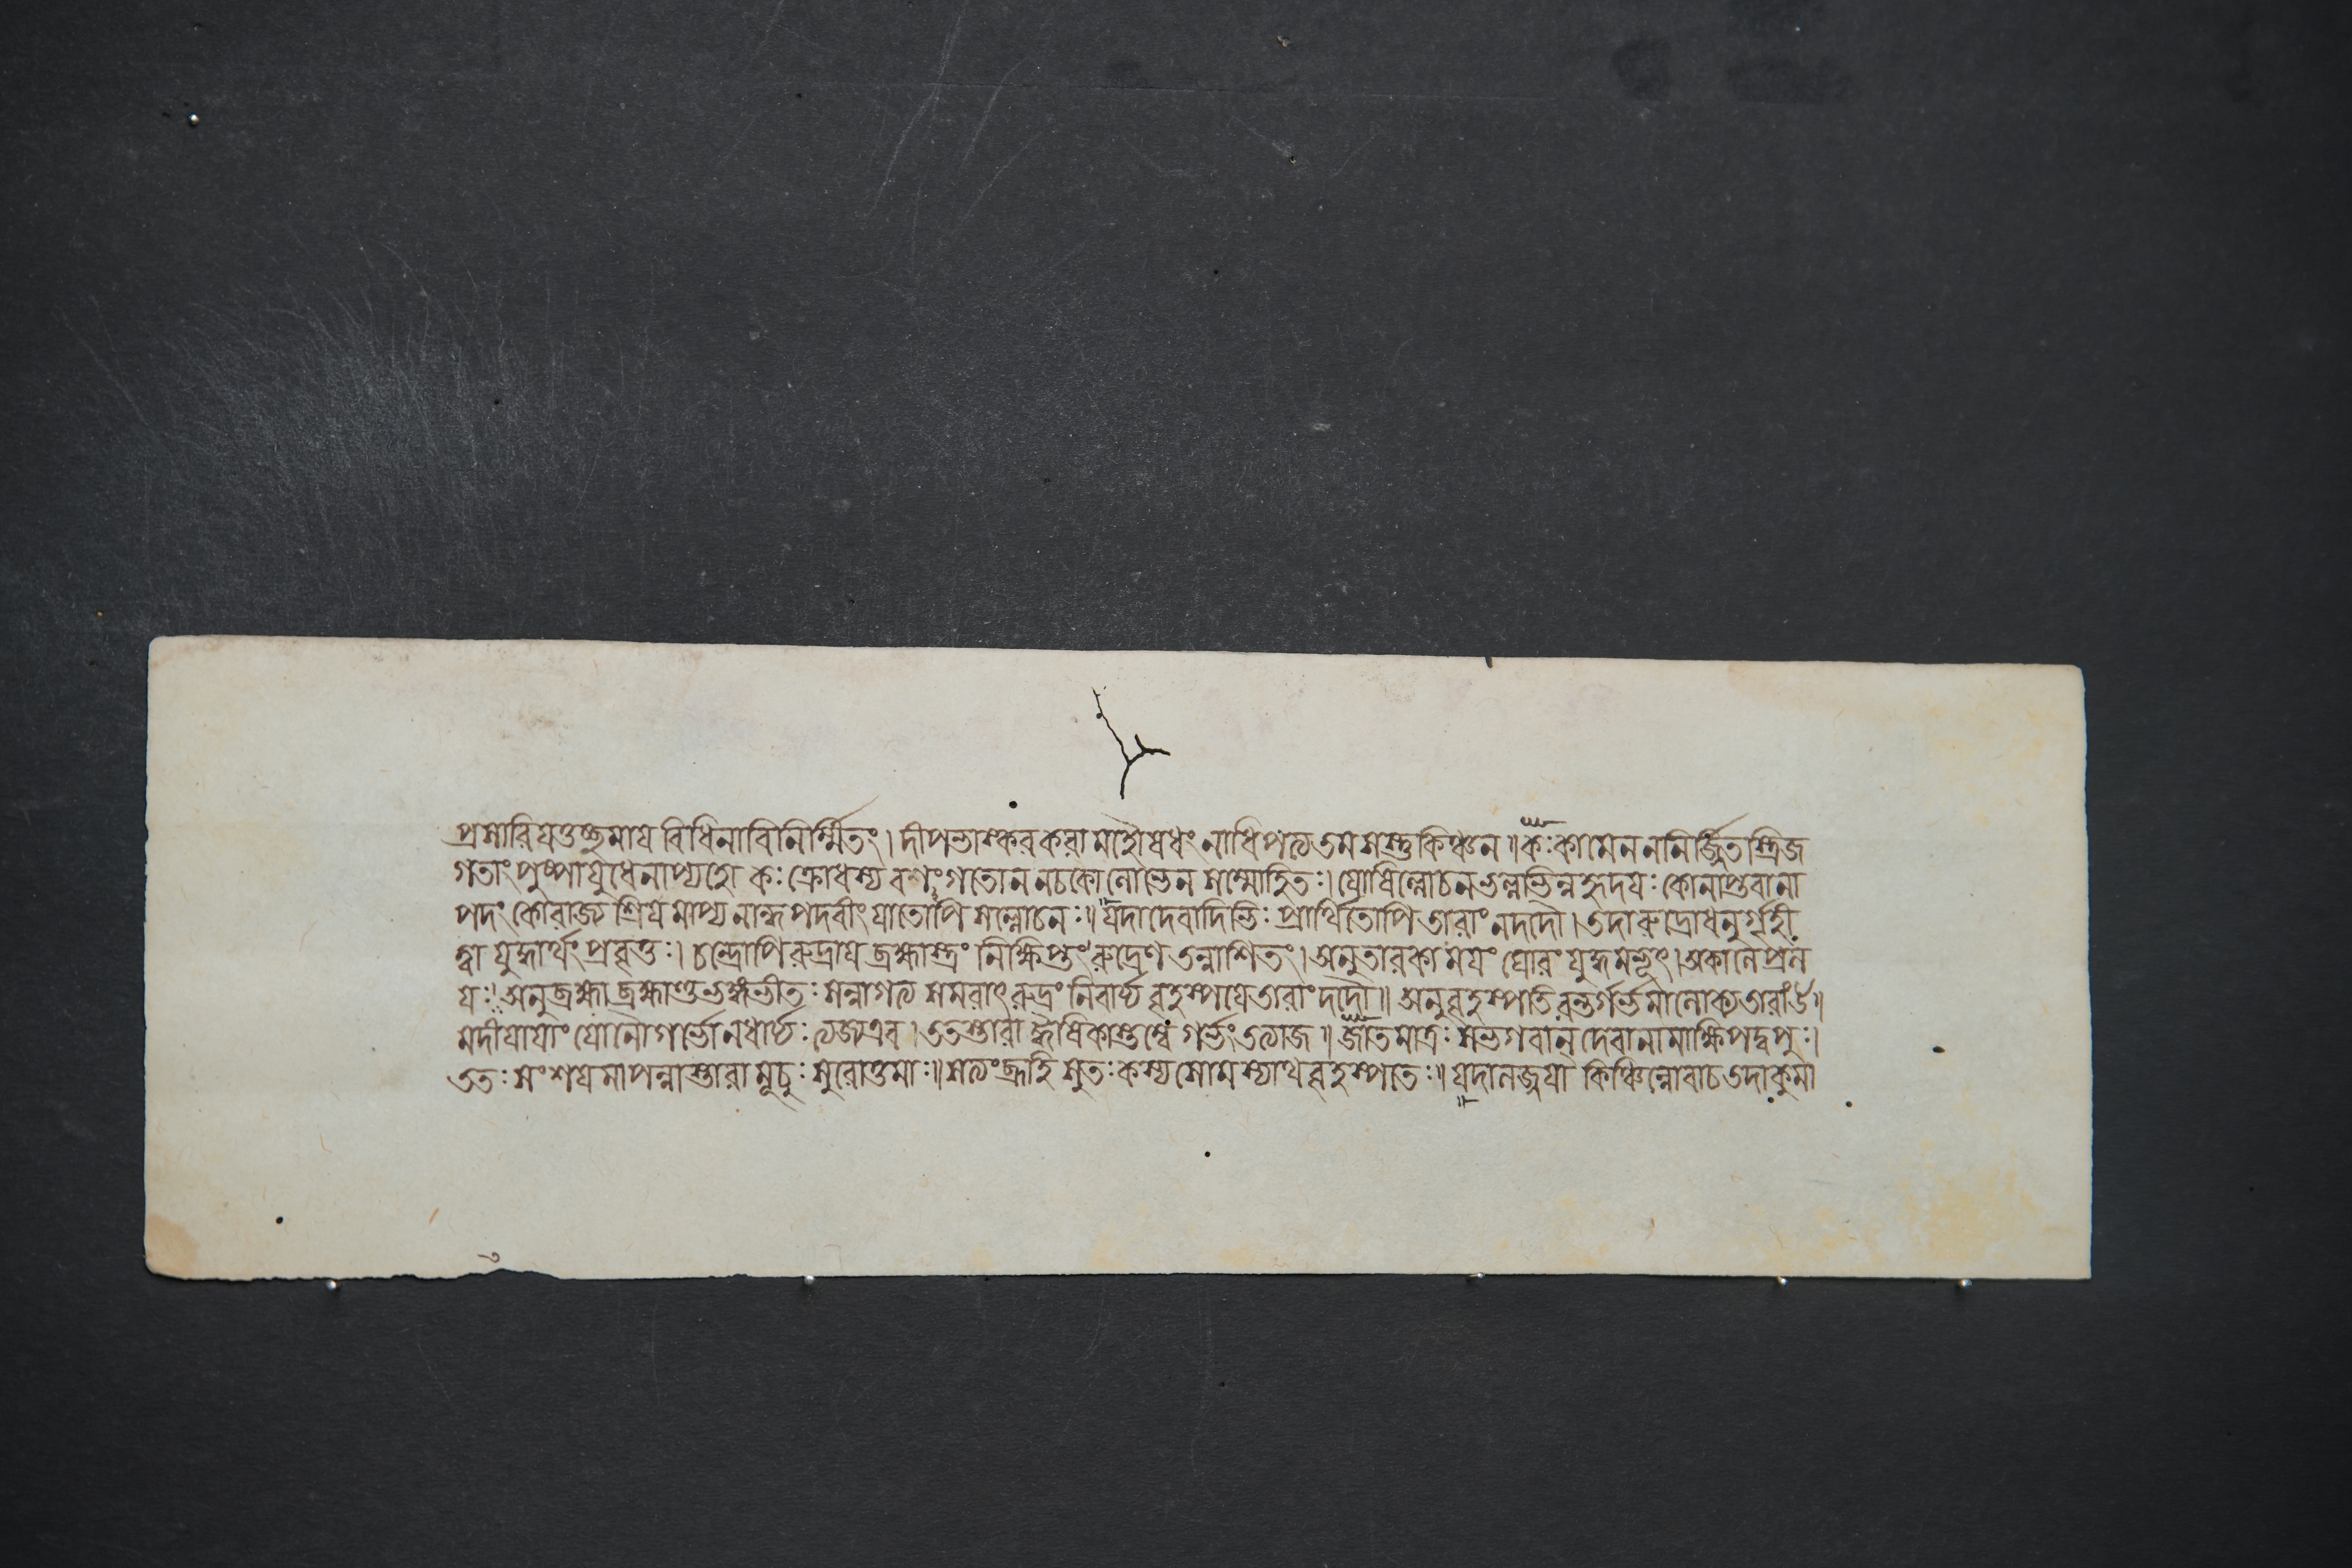 প্রসারিযত্তচ্ছমায বিধিনাবিনির্ম্মিতং। দীপভাস্করকরা মহৌষধং নাধিপত্যতমসস্তুকিঞ্চন॥কঃকামেনননির্জ্জিতস্ত্রিজ
গতাং পুষ্পাযুধেনাপ্যহো কঃ ক্রোধস্য বশংগতোননচকোলোভেন সম্মোহিতঃ।যোষিল্লোচনভল্লভিন্নহৃদযঃ কোনাপ্তবানা
পদং কোরাজ্য শ্রিযমাপ্য নান্ধপদবীং যাতোপি সল্লোচনঃ॥যদাদেবাদিভিঃ প্রার্থিতোপি তারাং নদদৌ।তদারুদ্রোধনুর্গৃহী
ত্বা যুদ্ধার্থং প্রবৃত্তঃ। চন্দ্রোপিরুদ্রায ব্রহ্মাস্ত্রং নিক্ষিপ্তং রুদ্রেণ তন্নাশিতং।অনুতারকামযং ঘোরং যুদ্ধমভূৎ।অকালেপ্রল
যঃ।অনুব্রহ্মা ব্রহ্মাণ্ডভঙ্গভীতঃ সন্নাগত্য সমরাৎ রুদ্রং নিবার্য্য বৃহস্পযেতারাংদদৌ॥ অনুবৃহস্পতিরন্তর্গর্ভমালোক্যতারাং৪॥
মদীযাযাং যোনৌগর্ভোনধার্য্যঃত্যজ্যএব।ততস্তারা হ্যৈষিকাস্তম্বে গর্ভংতত্যাজ॥জাতমাত্রঃ সভগবান্ দেবানামাক্ষিপদ্বপুঃ।
ততঃ সংশযমাপন্নাস্তারামূচুঃ সুরোত্তমাঃ॥সত্যংব্রূহি সুতঃকস্যসোমস্যাথবৃহস্পতেঃ॥যদালজ্জযা কিঞ্চিন্নোবাচতদাকুমা